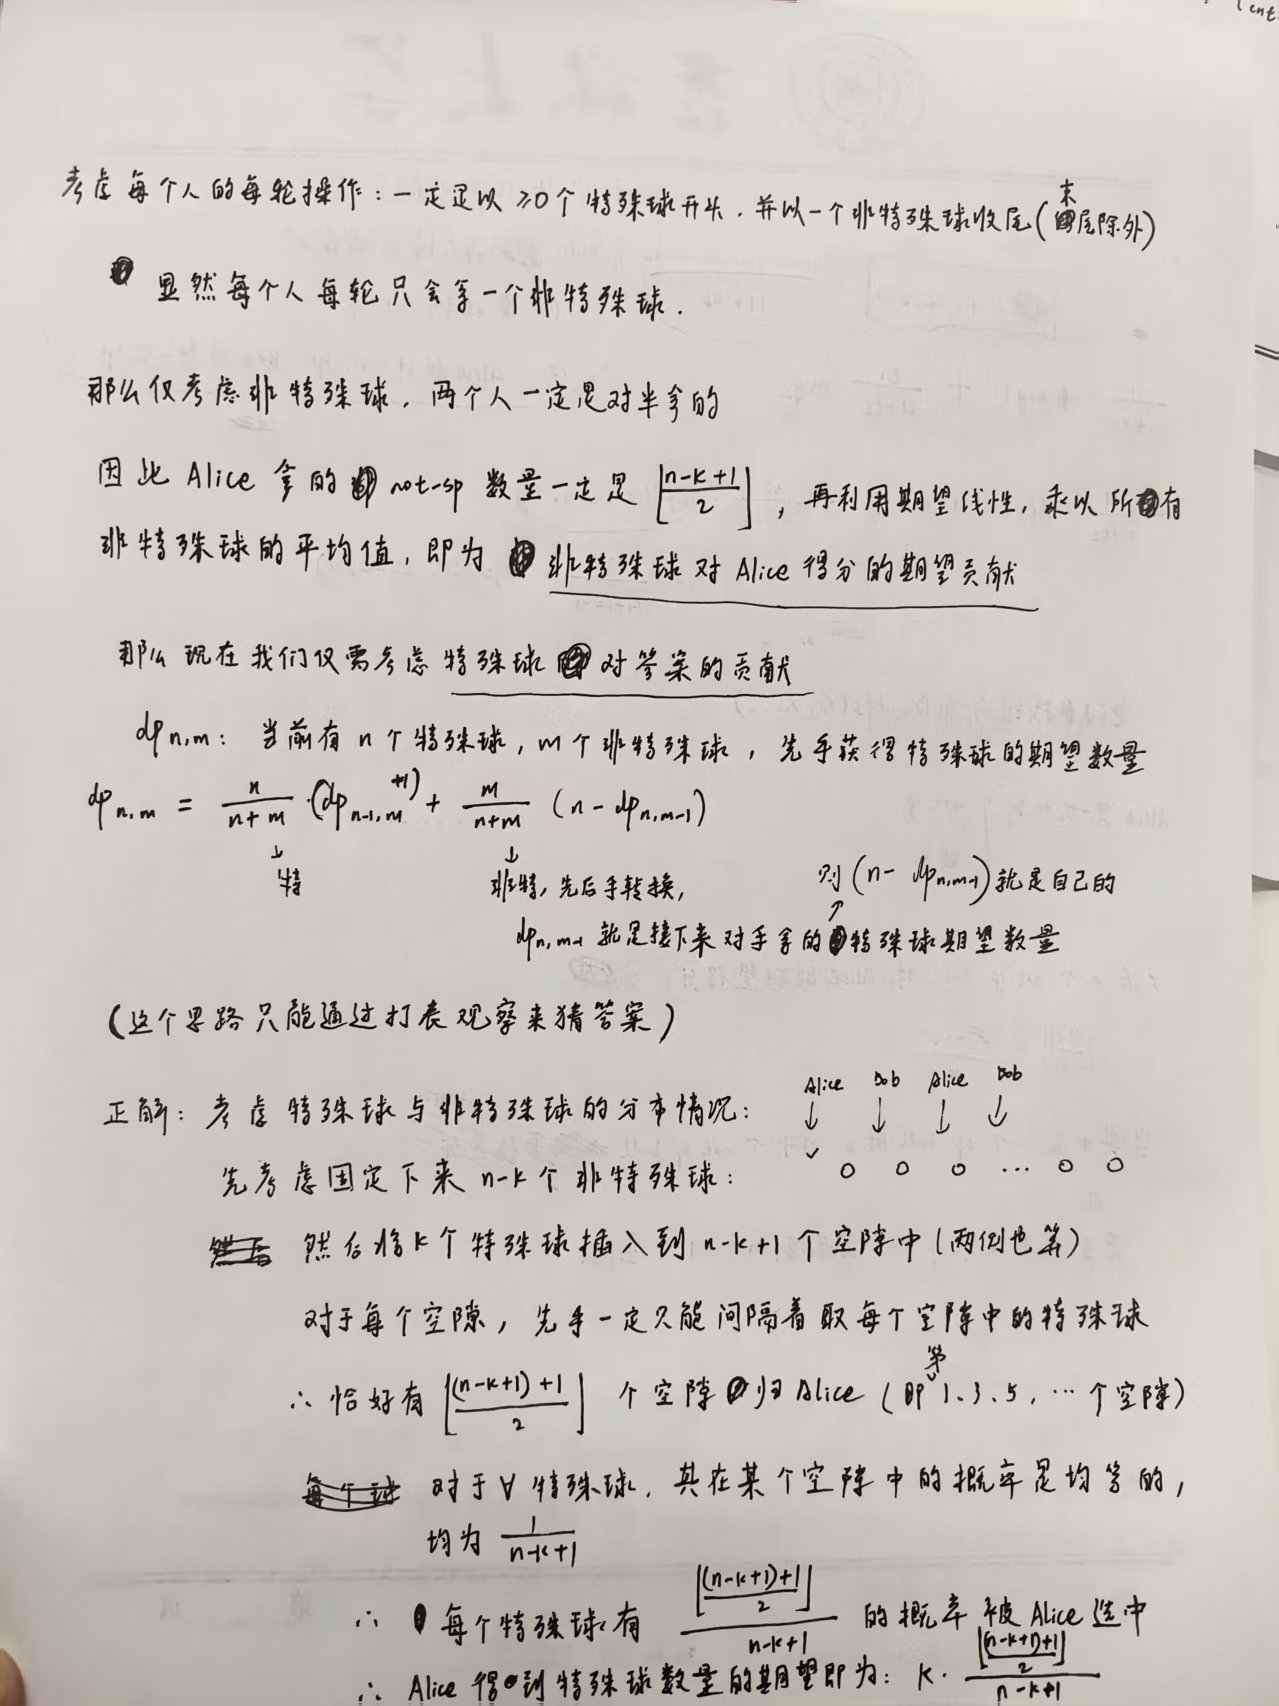 考虑每个人的每轮操作：一定是以 ≥0个 特殊球开头，并以一个非特殊球收尾(末尾除外)
显然每个人每轮只会拿一个非特殊球.
那么仅考虑非特殊球，两个人一定是对半拿的
因此 Alice 拿的 not-sp 数量一定是 ⌊(n-k+1)/2⌋，再利用期望线性，乘以所有
非特殊球的平均值，即为 非特殊球对 Alice 得分的期望贡献
那么现在我们仅需考虑特殊球对答案的贡献
dp n,m： 当前有 n 个特殊球，m 个非特殊球，先手获得特殊球的期望数量
dp n,m = n/(n+m) · (dp n-1,m +1) + m/(n+m) (n - dp n,m-1)
↓ 特
↓ 非特，先后手转换，
则 (n - dp n,m-1) 就是自己的
↑
dp n,m-1 就是接下来对手拿的特殊球期望数量
(这个思路只能通过打表观察来猜答案)
Alice Bob Alice Bob
↓ ↓ ↓ ↓
正解：考虑特殊球与非特殊球的分布情况：
先考虑固定下来 n-k 个非特殊球：
○ ○ ○ ... ○ ○
然后将 k 个特殊球插入到 n-k+1 个空隙中 (两侧也算)
对于每个空隙，先手一定只能间隔着取每个空隙中的特殊球
∴ 恰好有 ⌊((n-k+1)+1)/2⌋ 个空隙归 Alice (即第1、3、5，… 个空隙)
对于 ∀ 特殊球，其在某个空隙中的概率是均等的，
均为 1/(n-k+1)
∴ 每个特殊球有 ⌊((n-k+1)+1)/2⌋/(n-k+1) 的概率被 Alice 选中
∴ Alice 得到特殊球数量的期望即为：k · ⌊((n-k+1)+1)/2⌋/(n-k+1)